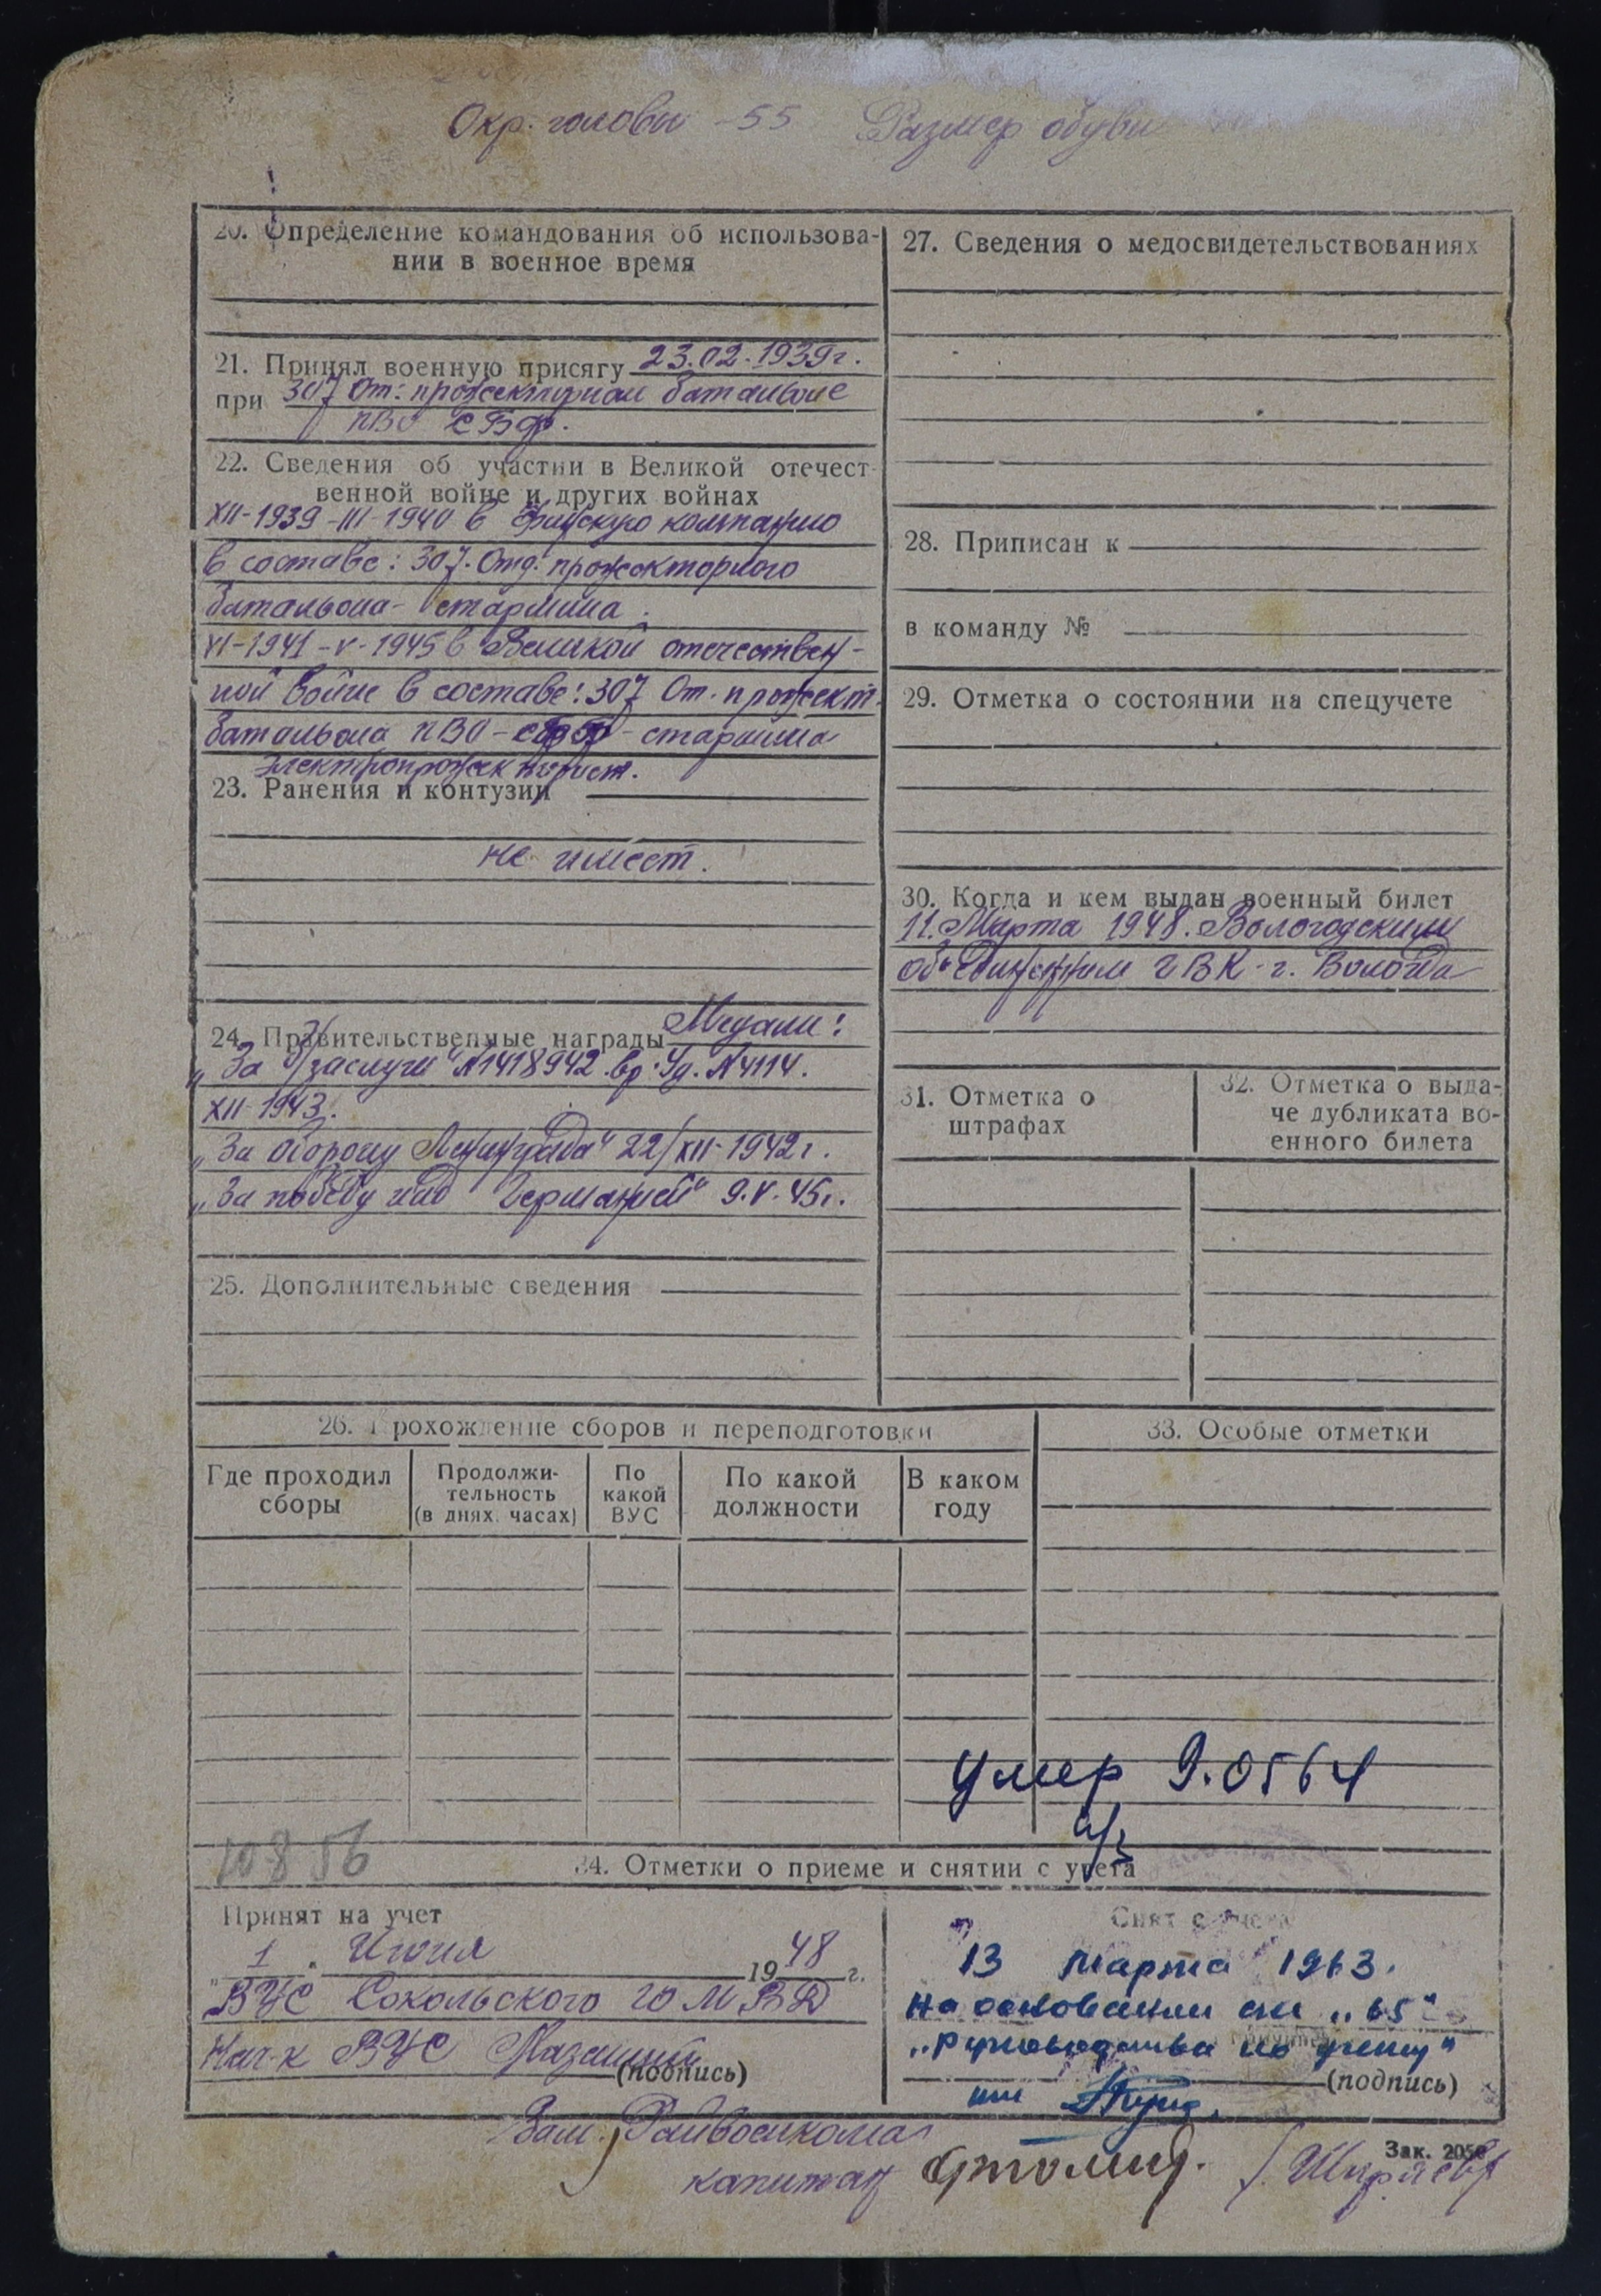 Окр. головы - 55 Размер обуви
20. Определение командования об использова-
нии в военное время
21. Принял военную присягу 23.02.1939г.
при 307 От: прожекторном батальоне
ПВО КБФ.
22. Сведения об участии в Великой отечест-
венной войне и других войнах
XII-1939-III-1940 в Финскую компанию
в составе: 307. Отд. прожекторного
батальона - старшина.
VI-1941-V-1945 в Великой отечествен-
ной войне в составе: 307 От. прожект.
батальона ПВО - - старшина
электропрожекторист.
23. Ранения и контузии
не имеет.
24. Правительственные награды Медали:
"За б/заслуги" №1418942 вр. Уд. №4114.
XII-1943.
"За оборону Ленинграда" 22/XII-1942г.
"За победу над Германией" 9.V.45г.
25. Дополнительные сведения
27. Сведения о медосвидетельствованиях
28. Приписан к
в команду №
29. Отметка о состоянии на спецучете
30. Когда и кем выдан военный билет
11. Марта 1948. Вологодским
объединенным ГВК - г. Вологда
31. Отметка о
штрафах
32. Отметка о выда-
че дубликата во-
енного билета
26. Прохождение сборов и переподготовки
Где проходил
сборы
Продолжи-
тельность
(в днях, часах)
По
какой
ВУС
По какой
должности
В каком
году
33. Особые отметки
умер 9.0564
10856
34. Отметки о приеме и снятии с учета
Принят на учет
"1" Июня 1948 г.
ВУС Сокольского ГО МВД
Нач-к ВУС
(подпись)
Снят с учета
13 марта 1963.
На основании ст. "65"
"Руководства по учету"
(подпись)
Зам. Райвоенкома
капитан
Зак. 205